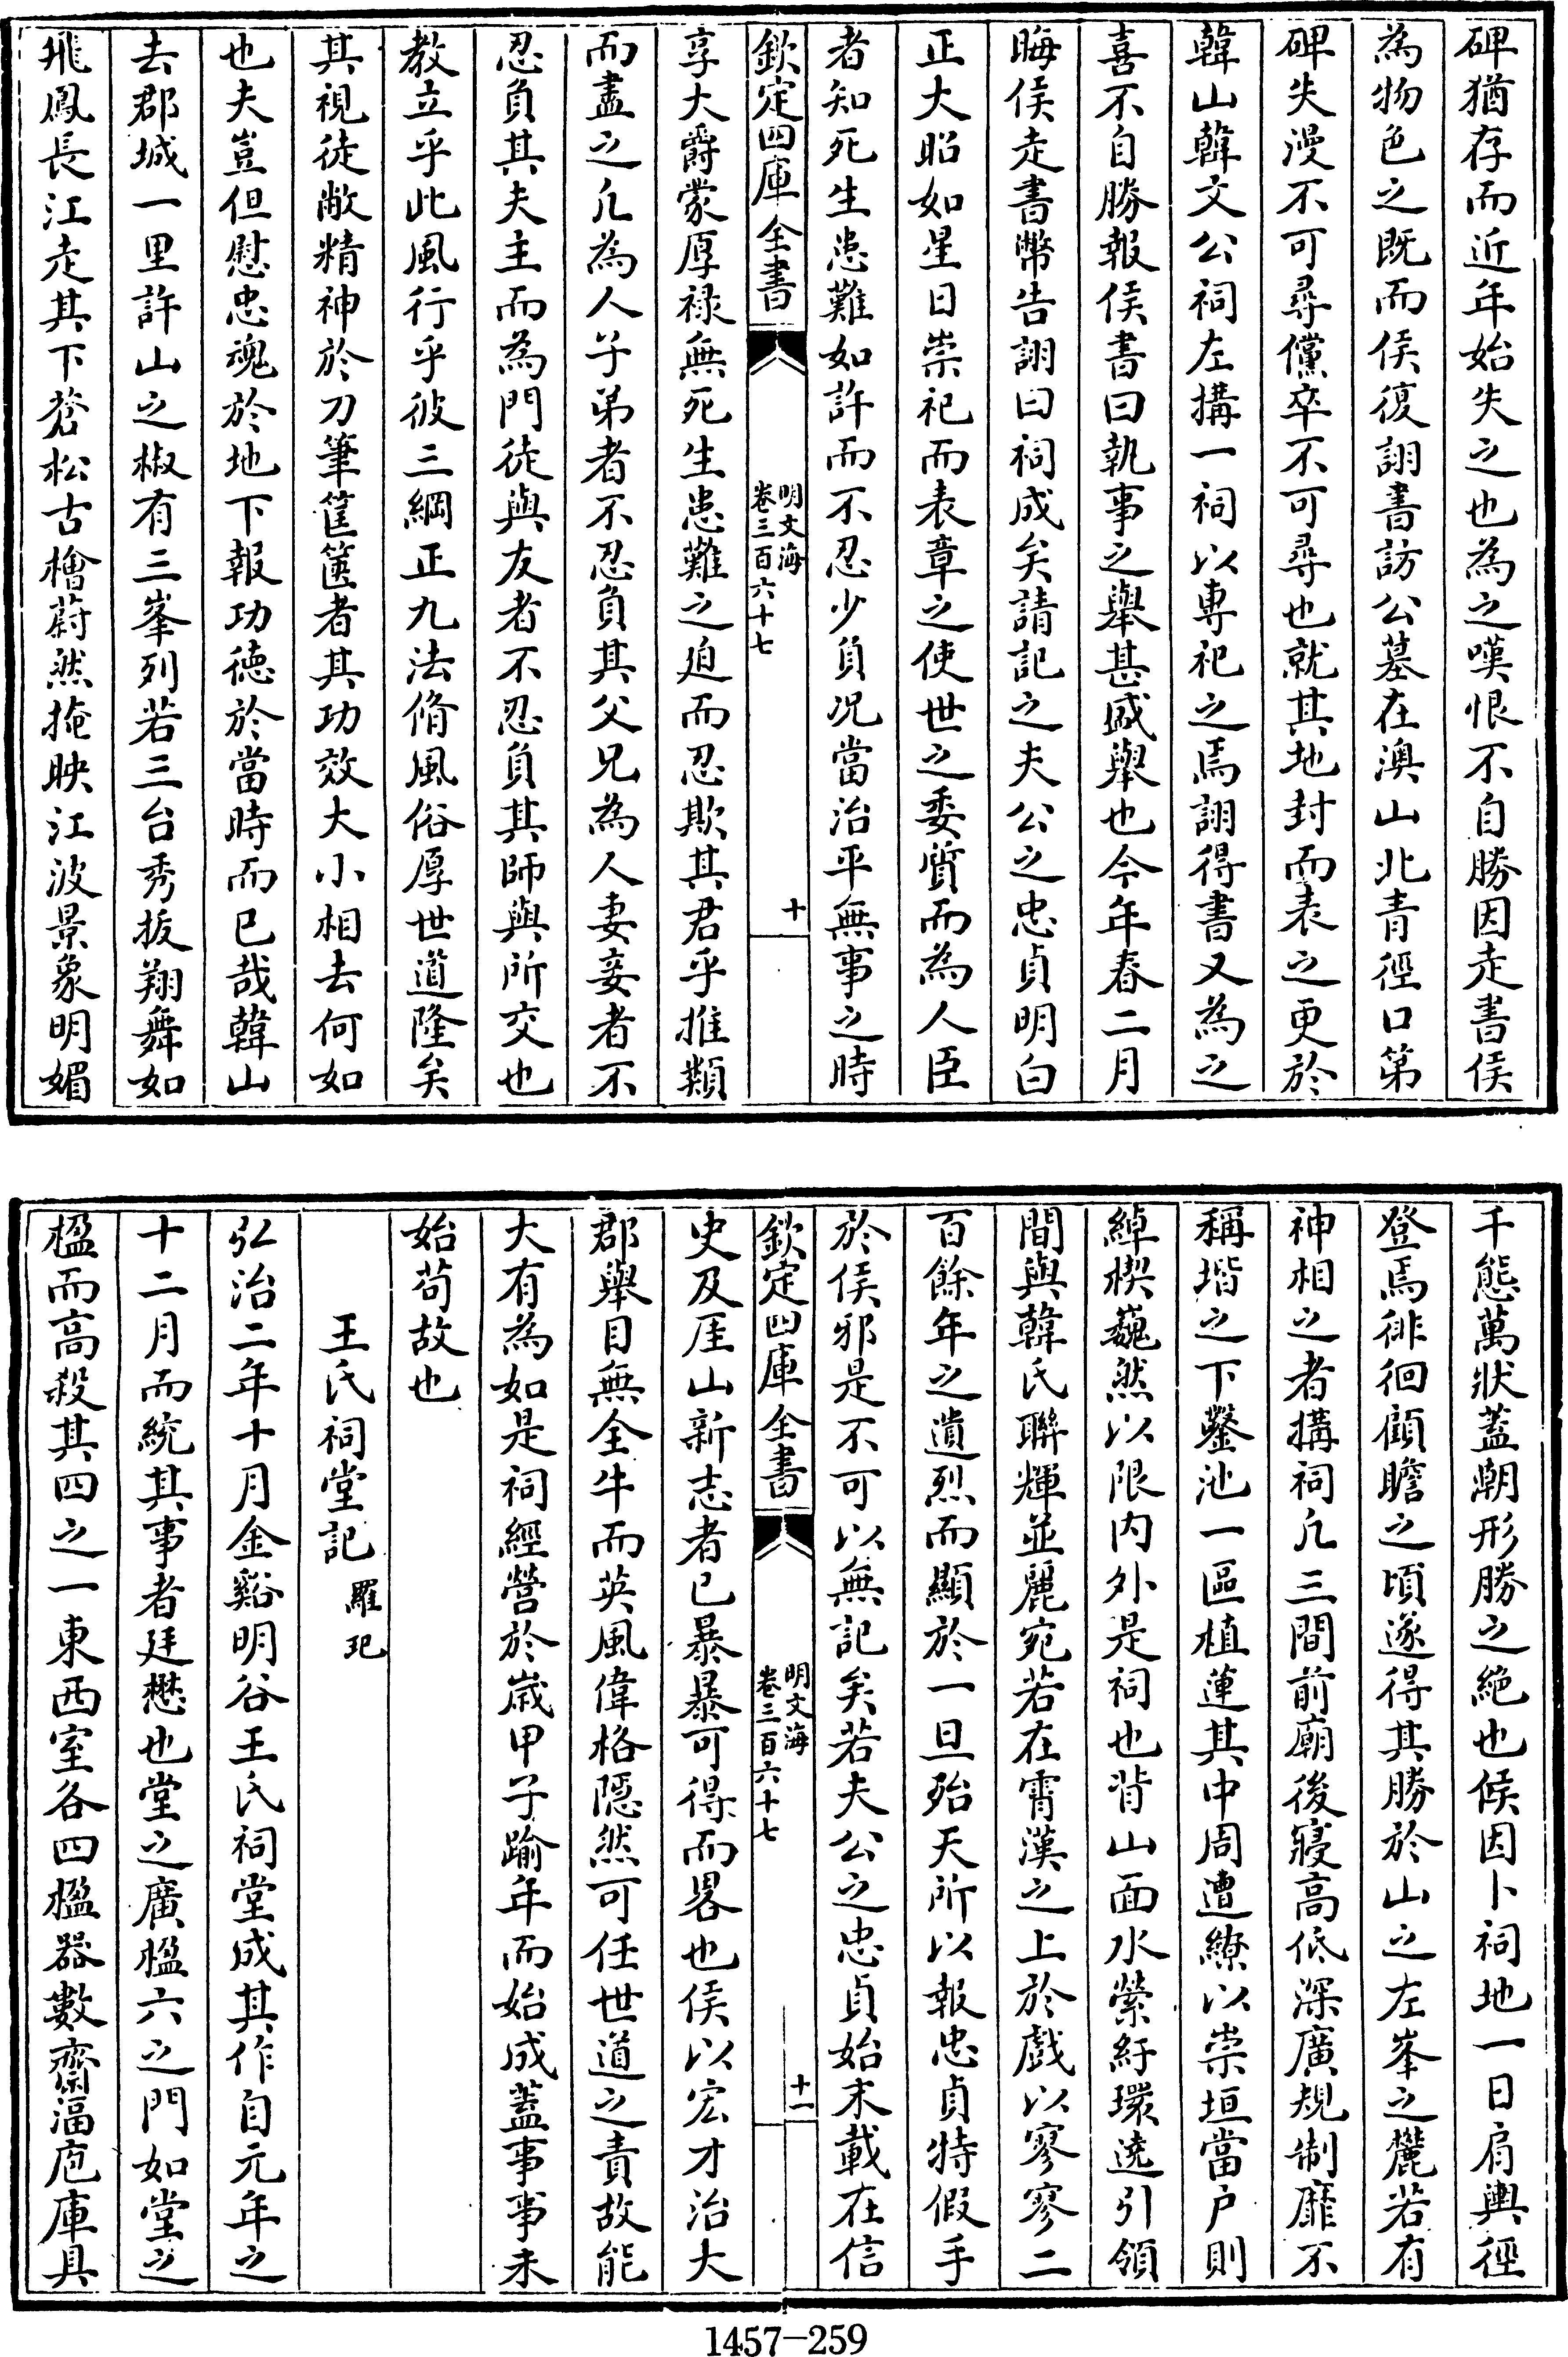 碑猶存而近年始失之也為之嘆恨不自勝因走書侯
為物色之既而侯復詡書訪公墓在澳山北青徑口第
碑失漫不可尋儻卒不可尋也就其地封而表之更於
韓山韓文公祠左搆一祠以專祀之焉詡得書又為之
喜不自勝報侯書曰執事之舉甚盛舉也今年春二月
晦侯走書幣告詡曰祠成矣請記之夫公之忠貞明白
正大昭如星日崇祀而表章之使世之委質而為人臣
者知死生患難如許而不忍少負况當治平無事之時
欽定四庫全書
明文海
卷三百六十七
十
享大爵蒙厚禄無死生患難之廹而忍欺其君乎推類
而盡之凡為人子弟者不忍負其父兄為人妻妾者不
忍負其夫主而為門徒與友者不忍負其師與所交也
教立乎此風行乎彼三綱正九法脩風俗厚世道隆矣
其視徒敝精神於刀筆筐篋者其功效大小相去何如
也夫豈但慰忠魂於地下報功德於當時而已哉韓山
去郡城一里許山之椒有三峯列若三台秀拔翔舞如
飛鳳長江走其下蒼松古檜蔚然掩映江波景象明媚
千態萬狀蓋潮形勝之絶也候因卜祠地一日肩輿徑
登焉徘徊顧瞻之頃遂得其勝於山之左峯之麓若有
神相之者搆祠凡三間前廟後寢高低深廣規制靡不
稱堦之下鑿池一區植蓮其中周遭繚以崇垣當户則
綽楔巍然以限内外是祠也背山面水縈紆環遶引領
間與韓氏聯輝並麗宛若在霄漢之上於戲以寥寥二
百餘年之遺烈而顯於一旦殆天所以報忠貞特假手
於侯邪是不可以無記矣若夫公之忠貞始末載在信
欽定四庫全書
明文海
卷三百六十七
十一
史及厓山新志者已暴暴可得而畧也侯以宏才治大
郡舉目無全牛而英風偉格隠然可任世道之責故能
大有為如是祠經營於歲甲子踰年而始成蓋事事未
始苟故也
王氏祠堂記 羅玘
弘治二年十月金谿明谷王氏祠堂成其作自元年之
十二月而統其事者廷懋也堂之廣楹六之門如堂之
楹而高殺其四之一東西室各四楹器數齋湢庖庫具
1457-259